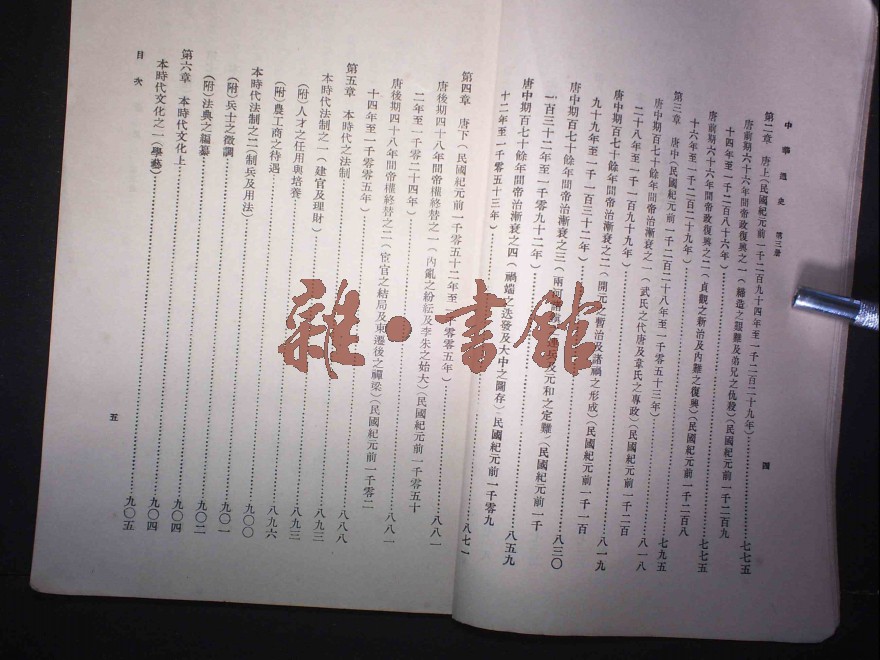 中華通史 第三册
四
第二章 唐上(民國紀元前一千二百九十四年至一千二百二十九年)……七七五
唐前期六十六年間帝政復興之一(締造之艱難及弟兄之仇殺)(民國紀元前一千二百九
十四年至一千二百八十六年)……七七五
唐前期六十六年間帝政復興之二(貞觀之新治及內難之復興)(民國紀元前一千二百八
十六年至一千二百二十九年)……七九五
第三章 唐中(民國紀元前一千二百二十八年至一千零五十三年)
唐中期百七十餘年間帝治漸衰之一(武氏之代唐及韋氏之專政)(民國紀元前一千二百
二十八年至一千一百九十九年)……八一八
唐中期百七十餘年間帝治漸衰之二(開元之暫治及諸禍之形成)(民國紀元前一千一百
九十九年至一千一百三十二年)……八一九
唐中期百七十餘年間帝治漸衰之三(兩河及元和之定難)(民國紀元前一千
一百三十二年至一千零九十二年)……八三〇
唐中期百七十餘年間帝治漸衰之四(禍端之迭發及大中之圖存)(民國紀元前一千零九
十二年至一千零五十三年)……八五九
第四章 唐下(民國紀元前一千零五十二年至一千零零五年)……八七一
唐後期四十八年間帝權終替之一(內亂之紛紜及李朱之始大)(民國紀元前一千零五十
二年至一千零二十四年)……八八一
唐後期四十八年間帝權終替之二(宦官之結局及東遷後之禪梁)(民國紀元前一千零二
十四年至一千零零五年)
第五章 本時代之法制……八八八
本時代法制之一(建官及理財)……八九三
(附)人才之任用與培養……八九三
(附)農工商之待遇……八九六
本時代法制之二(制兵及用法)……九〇〇
(附)兵士之徵調……九〇一
(附)法典之編纂……九〇二
第六章 本時代文化上……九〇四
本時代文化之一(學藝)……九〇五
目次
五
雜·書館